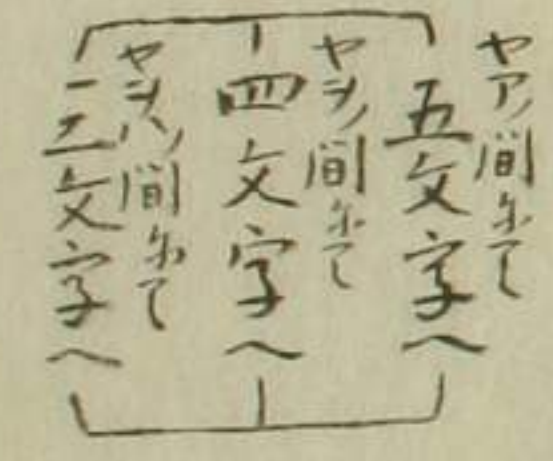 ヤアノ間にて
五文字へ
ヤヲノ間にて
四文字へ
ヤヲハノ間にて
三文字へ